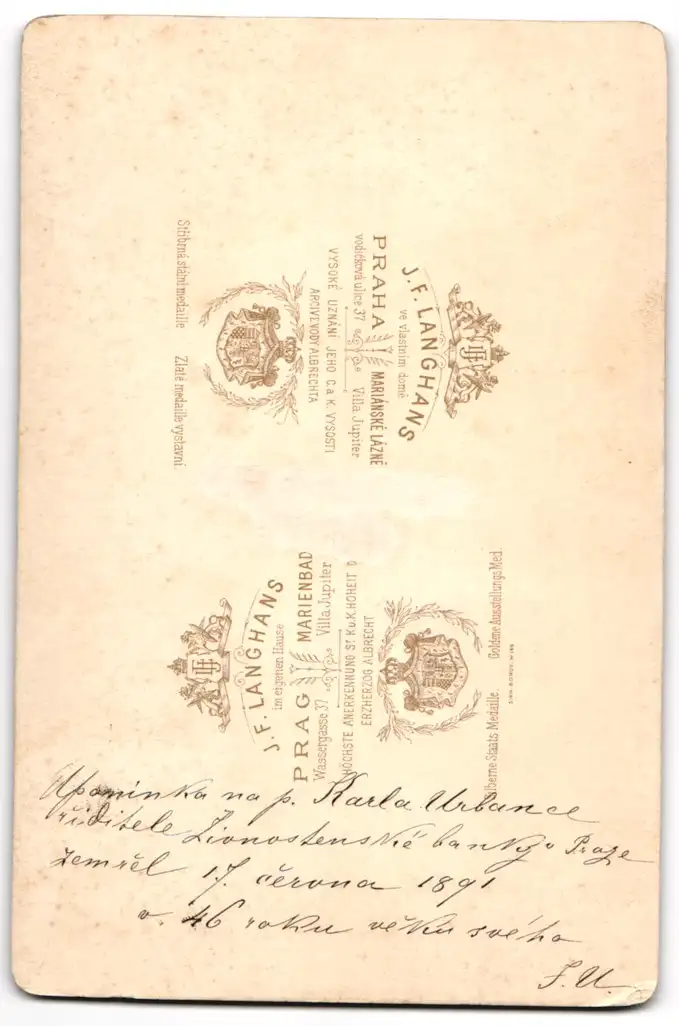 J. F. LANGHANS
ve vlastním domě
PRAHA MARIÁNSKÉ LÁZNĚ
vodičkova ulice 37 Villa Jupiter
VYSOKÉ UZNÁNÍ JEHO C. a K. VÝSOSTI
ARCIVEVODY ALBRECHTA
Stříbrná státní medaille Zlaté medaille výstavní
J. F. LANGHANS
im eigenen Hause
PRAG MARIENBAD
Wassergasse 37 Villa Jupiter
HÖCHSTE ANERKENNUNG Sr. K. u. K. HOHEIT D
ERZHERZOG ALBRECHT
Silberne Staats Medaille. Goldene Ausstellungs Med.
Upomínka na p. Karla Urbance
řiditele Živnostenské banky v Praze
zemřel 17. června 1891
v. 46 roku věku svého